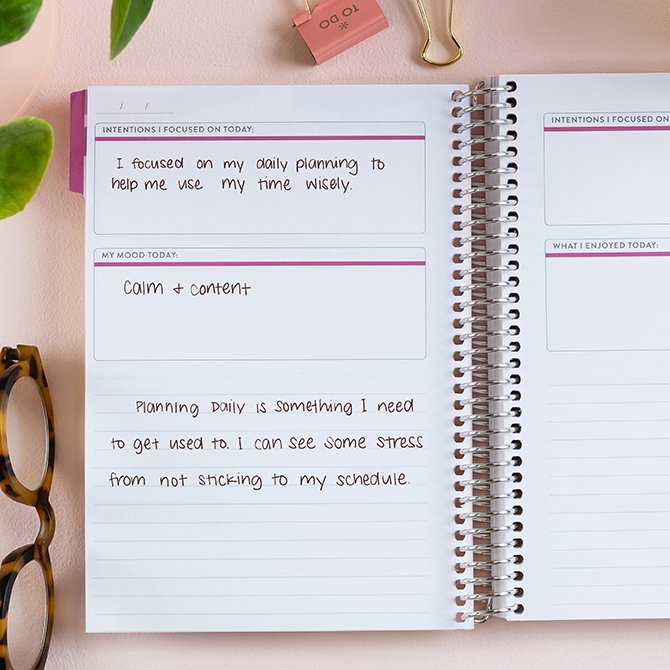 TO DO
/ /
INTENTIONS I FOCUSED ON TODAY:
I focused on my daily planning to
help me use my time wisely.
MY MOOD TODAY:
Calm + content
Planning Daily is something I need
to get used to. I can see some stress
from not sticking to my schedule.
INTENTIONS I FOCUSED ON
WHAT I ENJOYED TODAY: